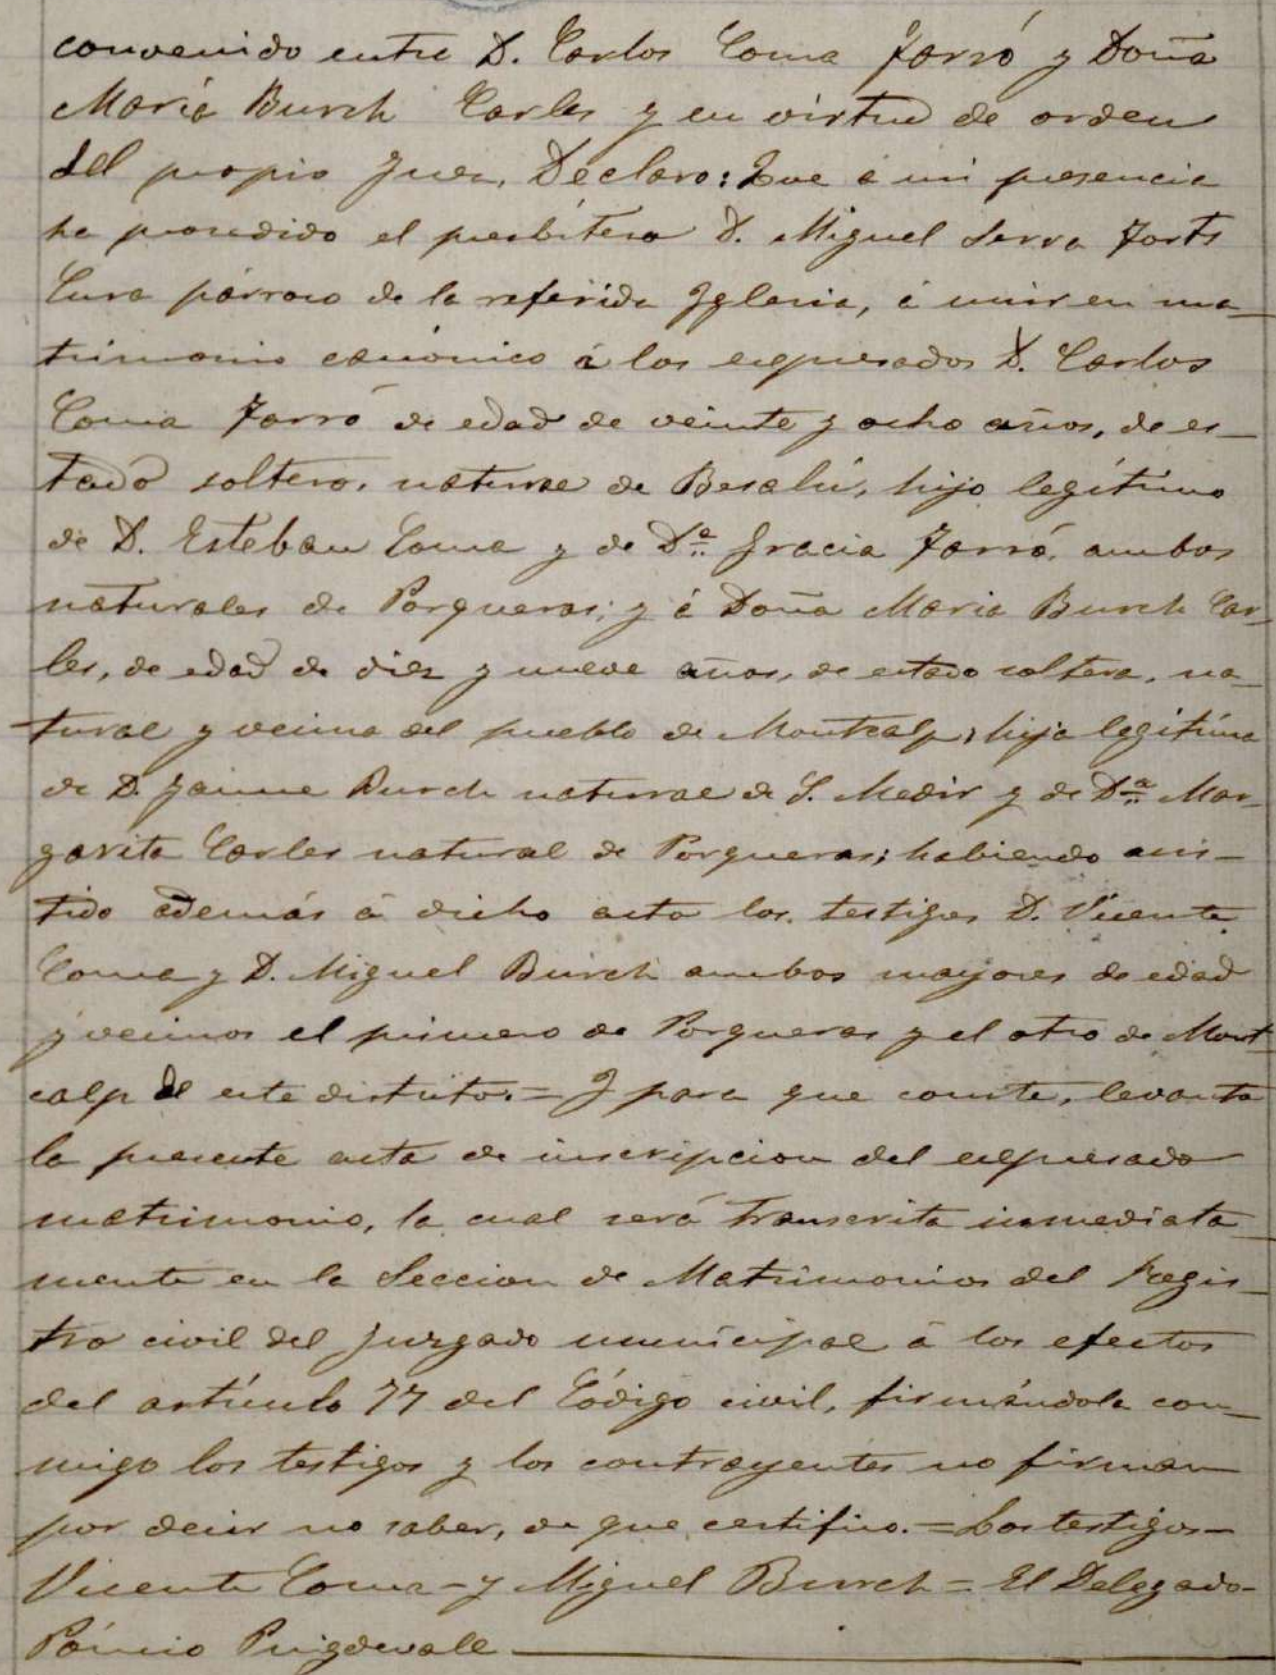 convenido entre D. Carlos Coma Jorró y Doña
María Burch Carles y en virtud de orden
del propio Juez, Declaro: Que á mi presencia
ha procedido el presbítero D. Miguel Serra Forts
Cura párroco de la referida Iglesia, á unir en ma-
trimonio canónico á los expresados D. Carlos
Coma Jorró de edad de veinte y ocho años, de es-
tado soltero, natural de Besalú, hijo legítimo
de D. Esteban Coma y de Dª Gracia Jorró, ambos
naturales de Porqueras; y á Doña Maria Burch Car-
les, de edad de diez y nueve años, de estado soltera, na-
tural y vecina del pueblo de Montcalp, hija legítima
de D. Jaime Burch natural de S. Medir y de Dª Mar-
garita Carles natural de Porqueras; habiendo asis-
tido además á dicho acto los testigos D. Vicente
Coma y D. Miguel Burch ambos mayores de edad
y vecinos el primero de Porqueras y el otro de Mont-
calp de este distrito. = Y para que conste, levanto
la presente acta de inscripcion del expresado
matrimonio, la cual será transcrita inmediata-
mente en la Seccion de Matrimonios del Regis-
tro civil del Juzgado municipal á los efectos
del artículo 77 del Código civil, firmándola con-
migo los testigos y los contrayentes no firman
por decir no saber, de que certifico. = Los testigos -
Vicente Coma - y Miguel Burch = El Delegado -
Puigdevall